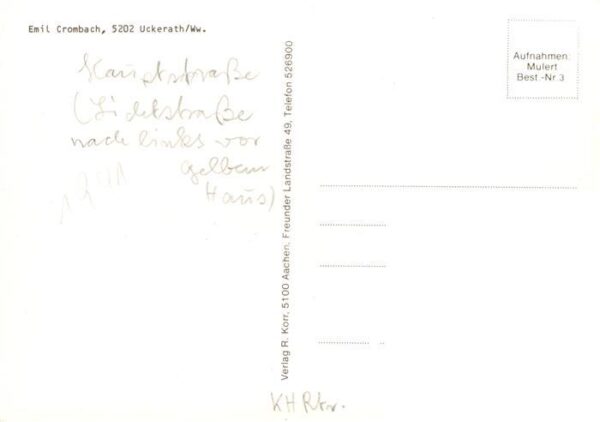 Emil Crombach, 5202 Uckerath/Ww.
Hauptstraße
nach links vor
gelbem
Haus)
Aufnahmen:
Mulert
Best.-Nr. 3
Verlag R. Korr, 5100 Aachen, Freunder Landstraße 49, Telefon 526900